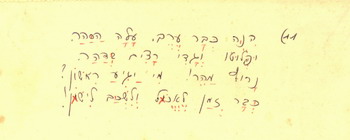 (11 הִנֵּה כְּבָר עֶרֶב. עָלָה הַסַּהַר.
וּגְדִי רָצִים
נָרוּץ מַהֵר! מִי יַגִּיעַ רִאשׁוֹן?
כְּבָר זְמַן לֶאֱכֹל וְלִשְׁכַּב לִישֹׁן!